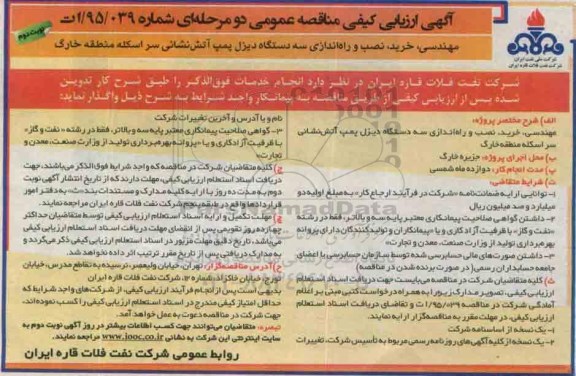 آگهی ارزیابی کیفی مناقصه عمومی دو مرحله‌ای شماره ۱/۹۵/۰۳۹ت
نوبت دوم
مهندسی، خرید، نصب و راه‌اندازی سه دستگاه دیزل پمپ آتش‌نشانی سر اسکله منطقه خارگ
شرکت ملی نفت ایران
شرکت نفت فلات قاره ایران
شرکت نفت فلات قاره ایران در نظر دارد انجام خدمات فوق‌الذکر را طبق شرح کار تدوین
شده پس از ارزیابی کیفی از طریق مناقصه به پیمانکار واجد شرایط به شرح ذیل واگذار نماید:
الف) شرح مختصر پروژه:
مهندسی، خرید، نصب و راه‌اندازی سه دستگاه دیزل پمپ آتش‌نشانی
سر اسکله منطقه خارگ
ب) محل اجرای پروژه: جزیره خارگ
پ) مدت انجام کار: دوازده ماه شمسی
ت) شرایط متقاضی:
۱- توانایی ارایه ضمانت‌نامه «شرکت در فرآیند ارجاع کار» به مبلغ اولیه دو
میلیارد و صد میلیون ریال
۲- داشتن گواهی صلاحیت پیمانکاری معتبر پایه سه و بالاتر، فقط در رشته
«نفت و گاز» با ظرفیت آزاد کاری و یا «پیمانکاران و تولیدکنندگان دارای پروانه
بهره‌برداری تولید از وزارت صنعت، معدن و تجارت»
۳- داشتن صورت‌های مالی حسابرسی شده توسط سازمان حسابرسی یا اعضای
جامعه حسابداران رسمی( در صورت برنده شدن در مناقصه)
ث) کلیه متقاضیان شرکت در مناقصه می‌بایست جهت دریافت اسناد استعلام
ارزیابی کیفی، تصویر مدارک زیر را به همراه درخواست کتبی مبنی بر اعلام
آمادگی شرکت در مناقصه ۱/۹۵/۰۳۹ت و تقاضای دریافت اسناد استعلام
ارزیابی کیفی، در مهلت مقرر به مناقصه‌گزار ارایه نمایند.
۱- یک نسخه از اساسنامه شرکت
۲- یک نسخه از کلیه آگهی‌های روزنامه رسمی مربوط به تأسیس شرکت، تغییرات
نام و یا آدرس و آخرین تغییرات شرکت
۳- گواهی صلاحیت پیمانکاری معتبر پایه سه و بالاتر، فقط در رشته «نفت و گاز»
با ظرفیت آزاد کاری و یا «پروانه بهره‌برداری تولید از وزارت صنعت، معدن و
تجارت»
ج) کلیه متقاضیان شرکت در مناقصه که واجد شرایط فوق‌الذکر می‌باشند، جهت
دریافت اسناد استعلام ارزیابی کیفی، مهلت دارند که از تاریخ انتشار آگهی نوبت
دوم به مدت ده روز با ارایه کلیه مدارک و مستندات بند«ث» به دفتر امور
قراردادها واقع در شرکت نفت فلات قاره ایران مراجعه نمایند.
چ) مهلت تکمیل و ارایه اسناد استعلام ارزیابی کیفی توسط متقاضیان حداکثر
چهارده روز تقویمی پس از انقضای مهلت دریافت اسناد استعلام ارزیابی کیفی
می‌باشد، تاریخ دقیق مهلت مزبور در اسناد استعلام ارزیابی کیفی ذکر می‌گردد و
به مدارک دریافتی پس از تاریخ مقرر ترتیب اثر داده نخواهد شد.
ح) آدرس مناقصه‌گزار: تهران، خیابان ولیعصر، نرسیده به تقاطع مدرس، خیابان
خاکزاد، شماره ۱۲، شرکت نفت فلات قاره ایران
بدیهی است پس از انجام فرآیند ارزیابی کیفی، از شرکت‌های واجد شرایط که
حداقل امتیاز کیفی مندرج در اسناد استعلام ارزیابی کیفی را کسب نموده‌اند،
جهت شرکت در مناقصه دعوت به عمل خواهد آمد.
تبصره: متقاضیان می‌توانند جهت کسب اطلاعات بیشتر در روز آگهی نوبت دوم به
سایت اینترنتی این شرکت به نشانی www.iooc.co.ir مراجعه نمایند.
روابط عمومی شرکت نفت فلات قاره ایران